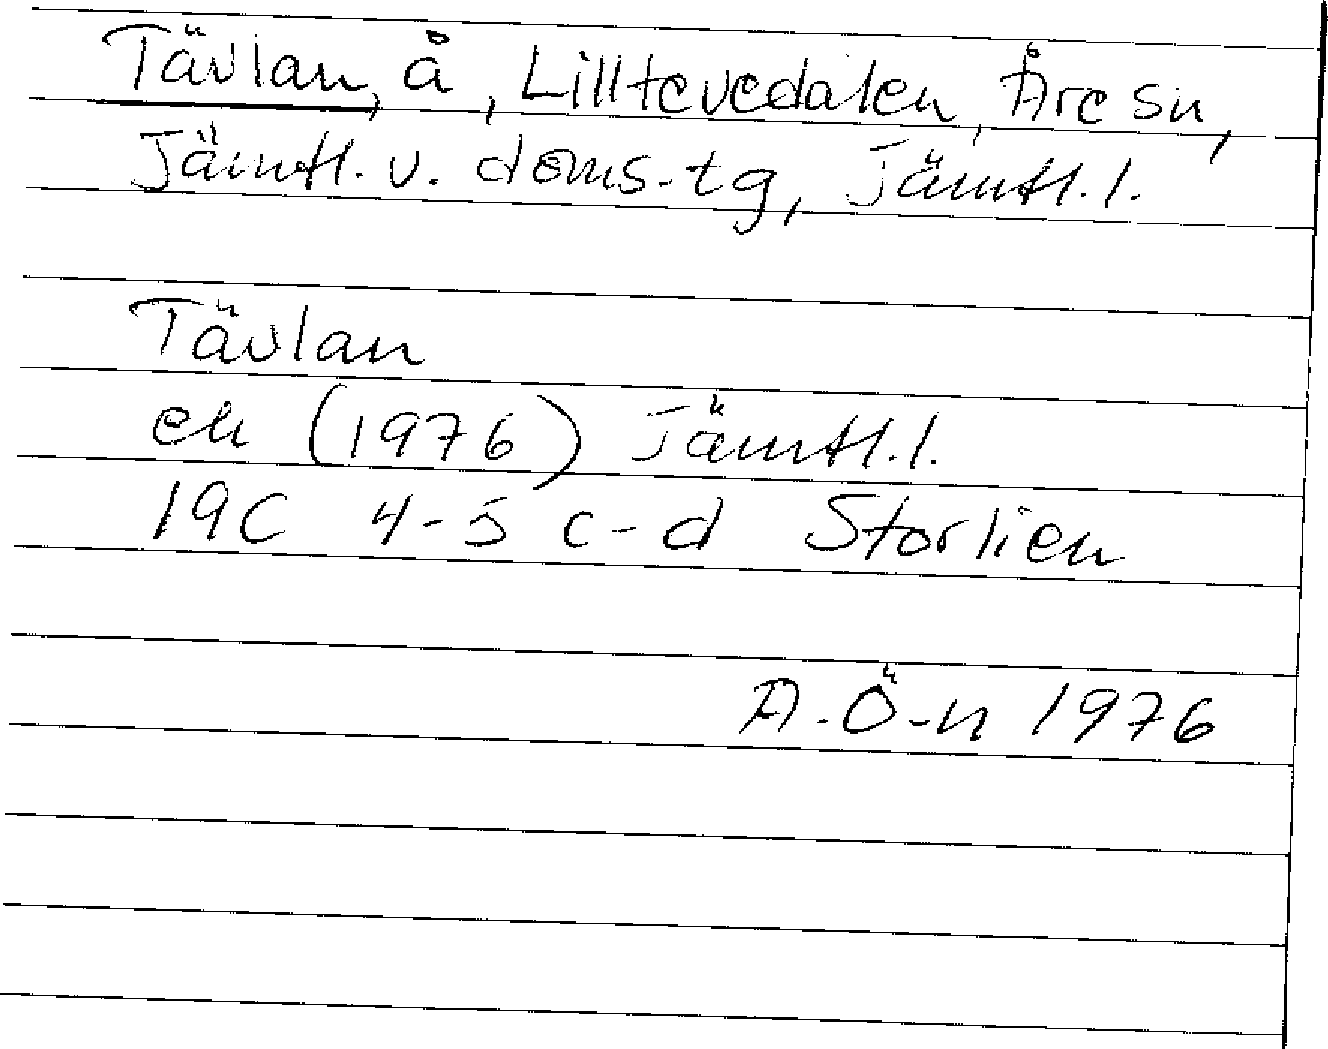 Tävlan, å, Lilltevedalen, Åre sn,
Jämtl. v. doms.-tg, Jämtl. l.
Tävlan
ek (1976) Jämtl. l.
19C 4-5 c-d Storlien
A. Ö-n 1976